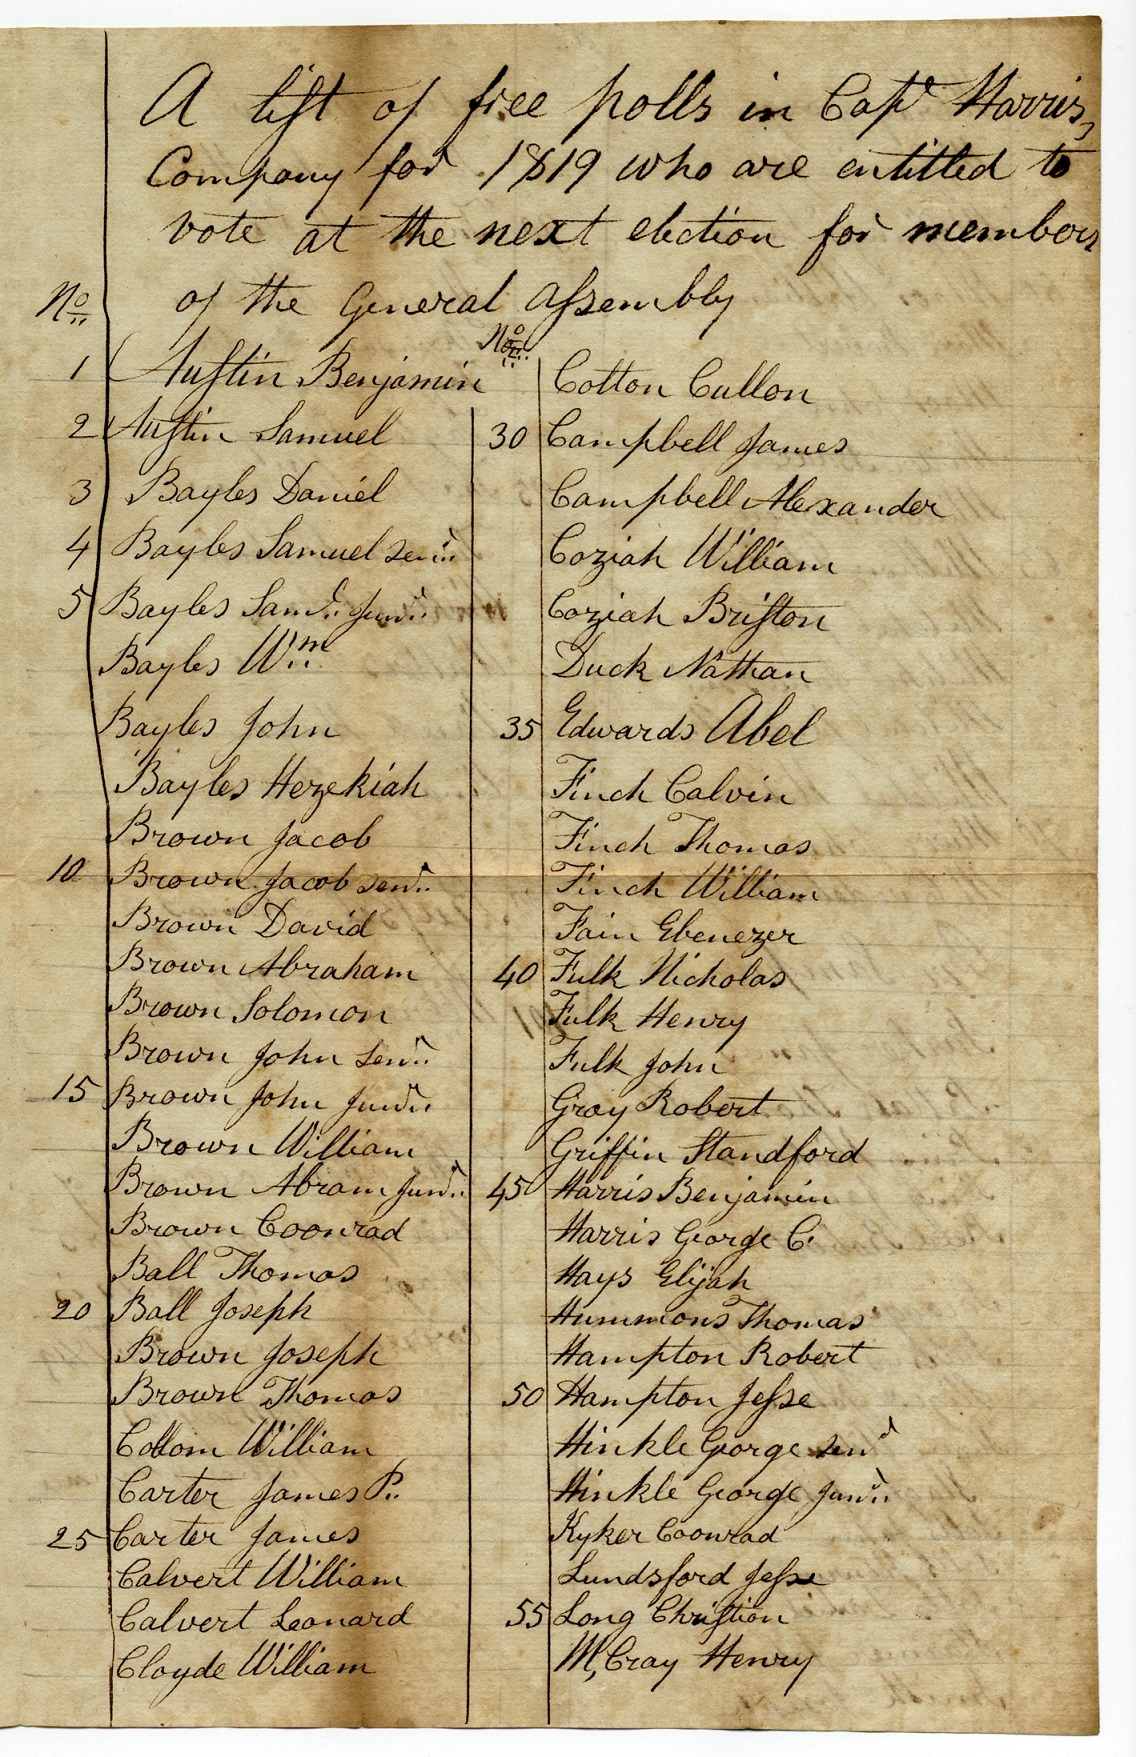 A list of free polls in Capt Harris,
Company for 1819 who are entitled to
vote at the next election for members
of the General Assembly
No
1 Austin Benjamin
2 Austin Samuel
3 Bayles Daniel
4 Bayles Samuel Senr.
5 Bayles Saml. Junr.
Bayles Wm
Bayles John
Bayles Hezekiah
Brown Jacob
10 Brown Jacob Senr.
Brown David
Brown Abraham
Brown Solomon
Brown John Senr.
15 Brown John Junr.
Brown William
Brown Abram Junr.
Brown Coonrad
Ball Thomas
20 Ball Joseph
Brown Joseph
Brown Thomas
Cottom William
Carter James P.
25 Carter James
Calvert William
Calvert Leonard
Cloyde William
No
Cotton Cullon
30 Campbell James
Campbell Alexander
Coziah William
Coziah Briston
Duck Nathan
35 Edwards Abel
Finch Calvin
Finch Thomas
Finch William
Fain Ebenezer
40 Fulk Nicholas
Fulk Henry
Fulk John
Gray Robert
Griffin Standford
45 Harris Benjamin
Harris George C.
Hays Elijah
Hummons Thomas
Hampton Robert
50 Hampton Jesse
Hinkle George Senr
Hinkle George Junr.
Kyker Coonrad
Lundsford Jesse
55 Long Christian
M,Cray Henry